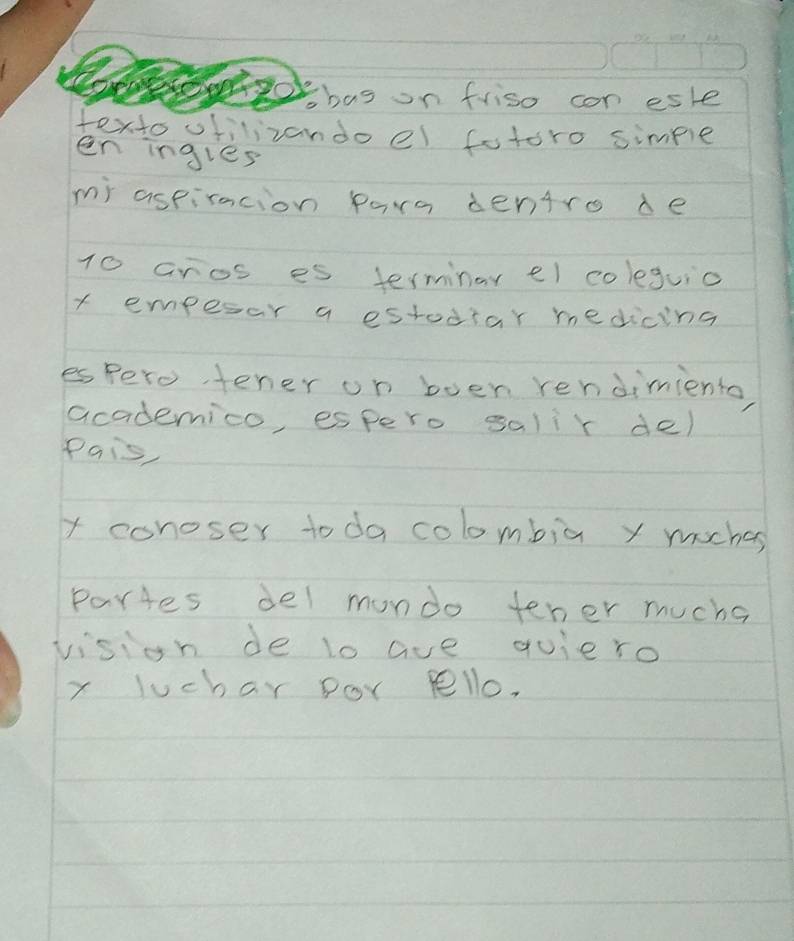 Compromiso: hag un friso con este
texto utilizando el futuro simple
en ingles
mi aspiracion para dentro de
10 años es terminar el coleguio
y empesar a estudiar medicina
espero tener un buen rendimiento
academico, espero salir del
pais,
y conoser toda colombia y muchas
partes del mundo tener mucha
vision de lo que quiero
y luchar por ello.